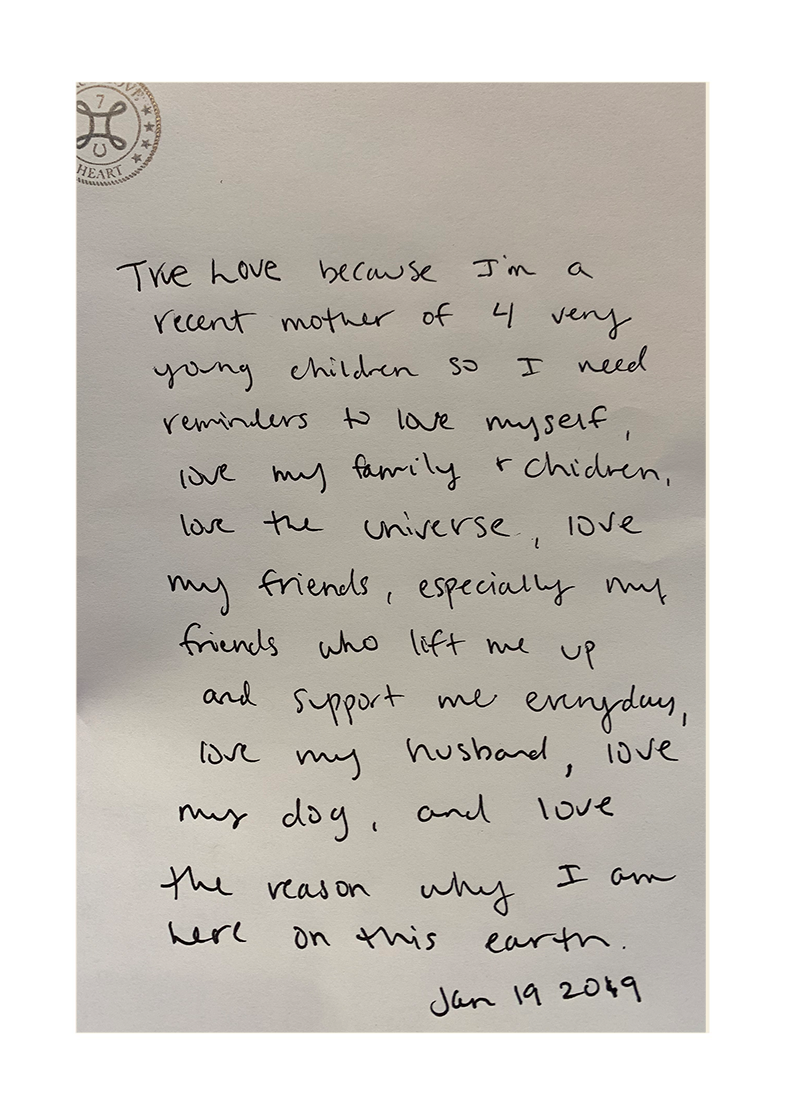 7
HEART
True Love because I'm a
recent mother of 4 very
young children so I need
reminders to love myself,
love my family + chidren,
love the universe, love
my friends, especially my
friends who lift me up
and support me everyday,
love my husband, love
my dog, and love
the reason why I am
here on this earth.
Jan 19 2019